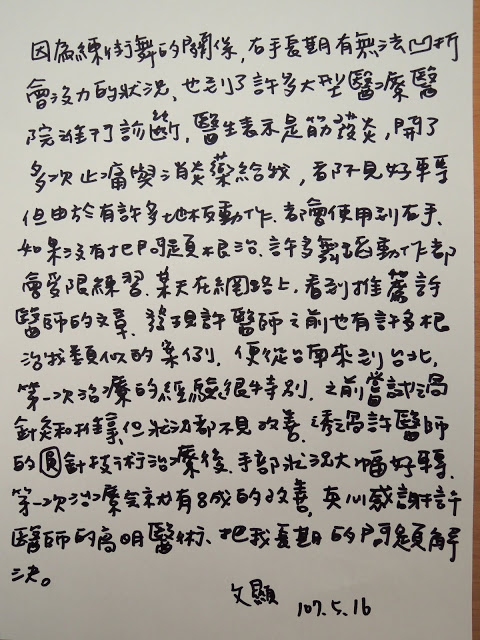 因為練街舞的關係，右手長期有無法凹折
會沒力的狀況，也到了許多大型醫療醫
院進行診斷，醫生表示是筋發炎，開了
多次止痛與消炎藥給我，都不見好轉
但由於有許多地板動作，都會使用到右手，
如果沒有把問題根治，許多舞蹈動作都
會受限練習，某天在網路上，看到推薦許
醫師的文章，發現許醫師之前也有許多根
治我類似的案例，便從台南來到台北，
第一次治療的經驗很特別，之前嘗試過
針灸和推拿，但狀況都不見改善，透過許醫師
的圓針技術治療後，手部狀況大幅好轉，
第一次治療完就有8成的改善，真心感謝許
醫師的高明醫術，把我長期的問題解
決。
文顯
107.5.16